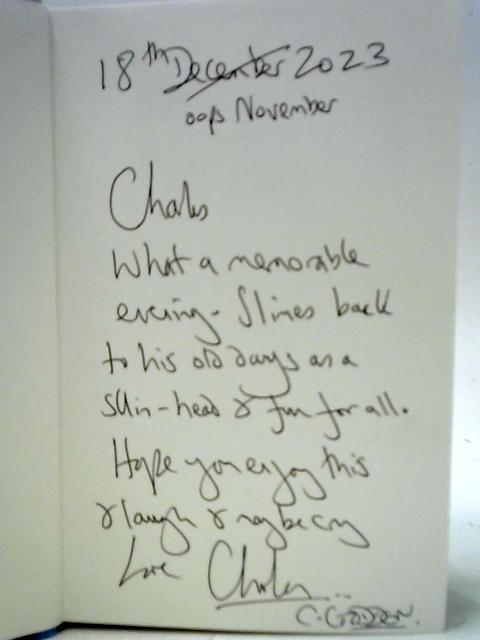 18th December 2023
oops November
Charles
What a memorable
evening - Slines back
to his old days as a
skin-head & fun for all.
Hope you enjoy this
& laugh & maybe cry
Love Charles
C. GODDEN.